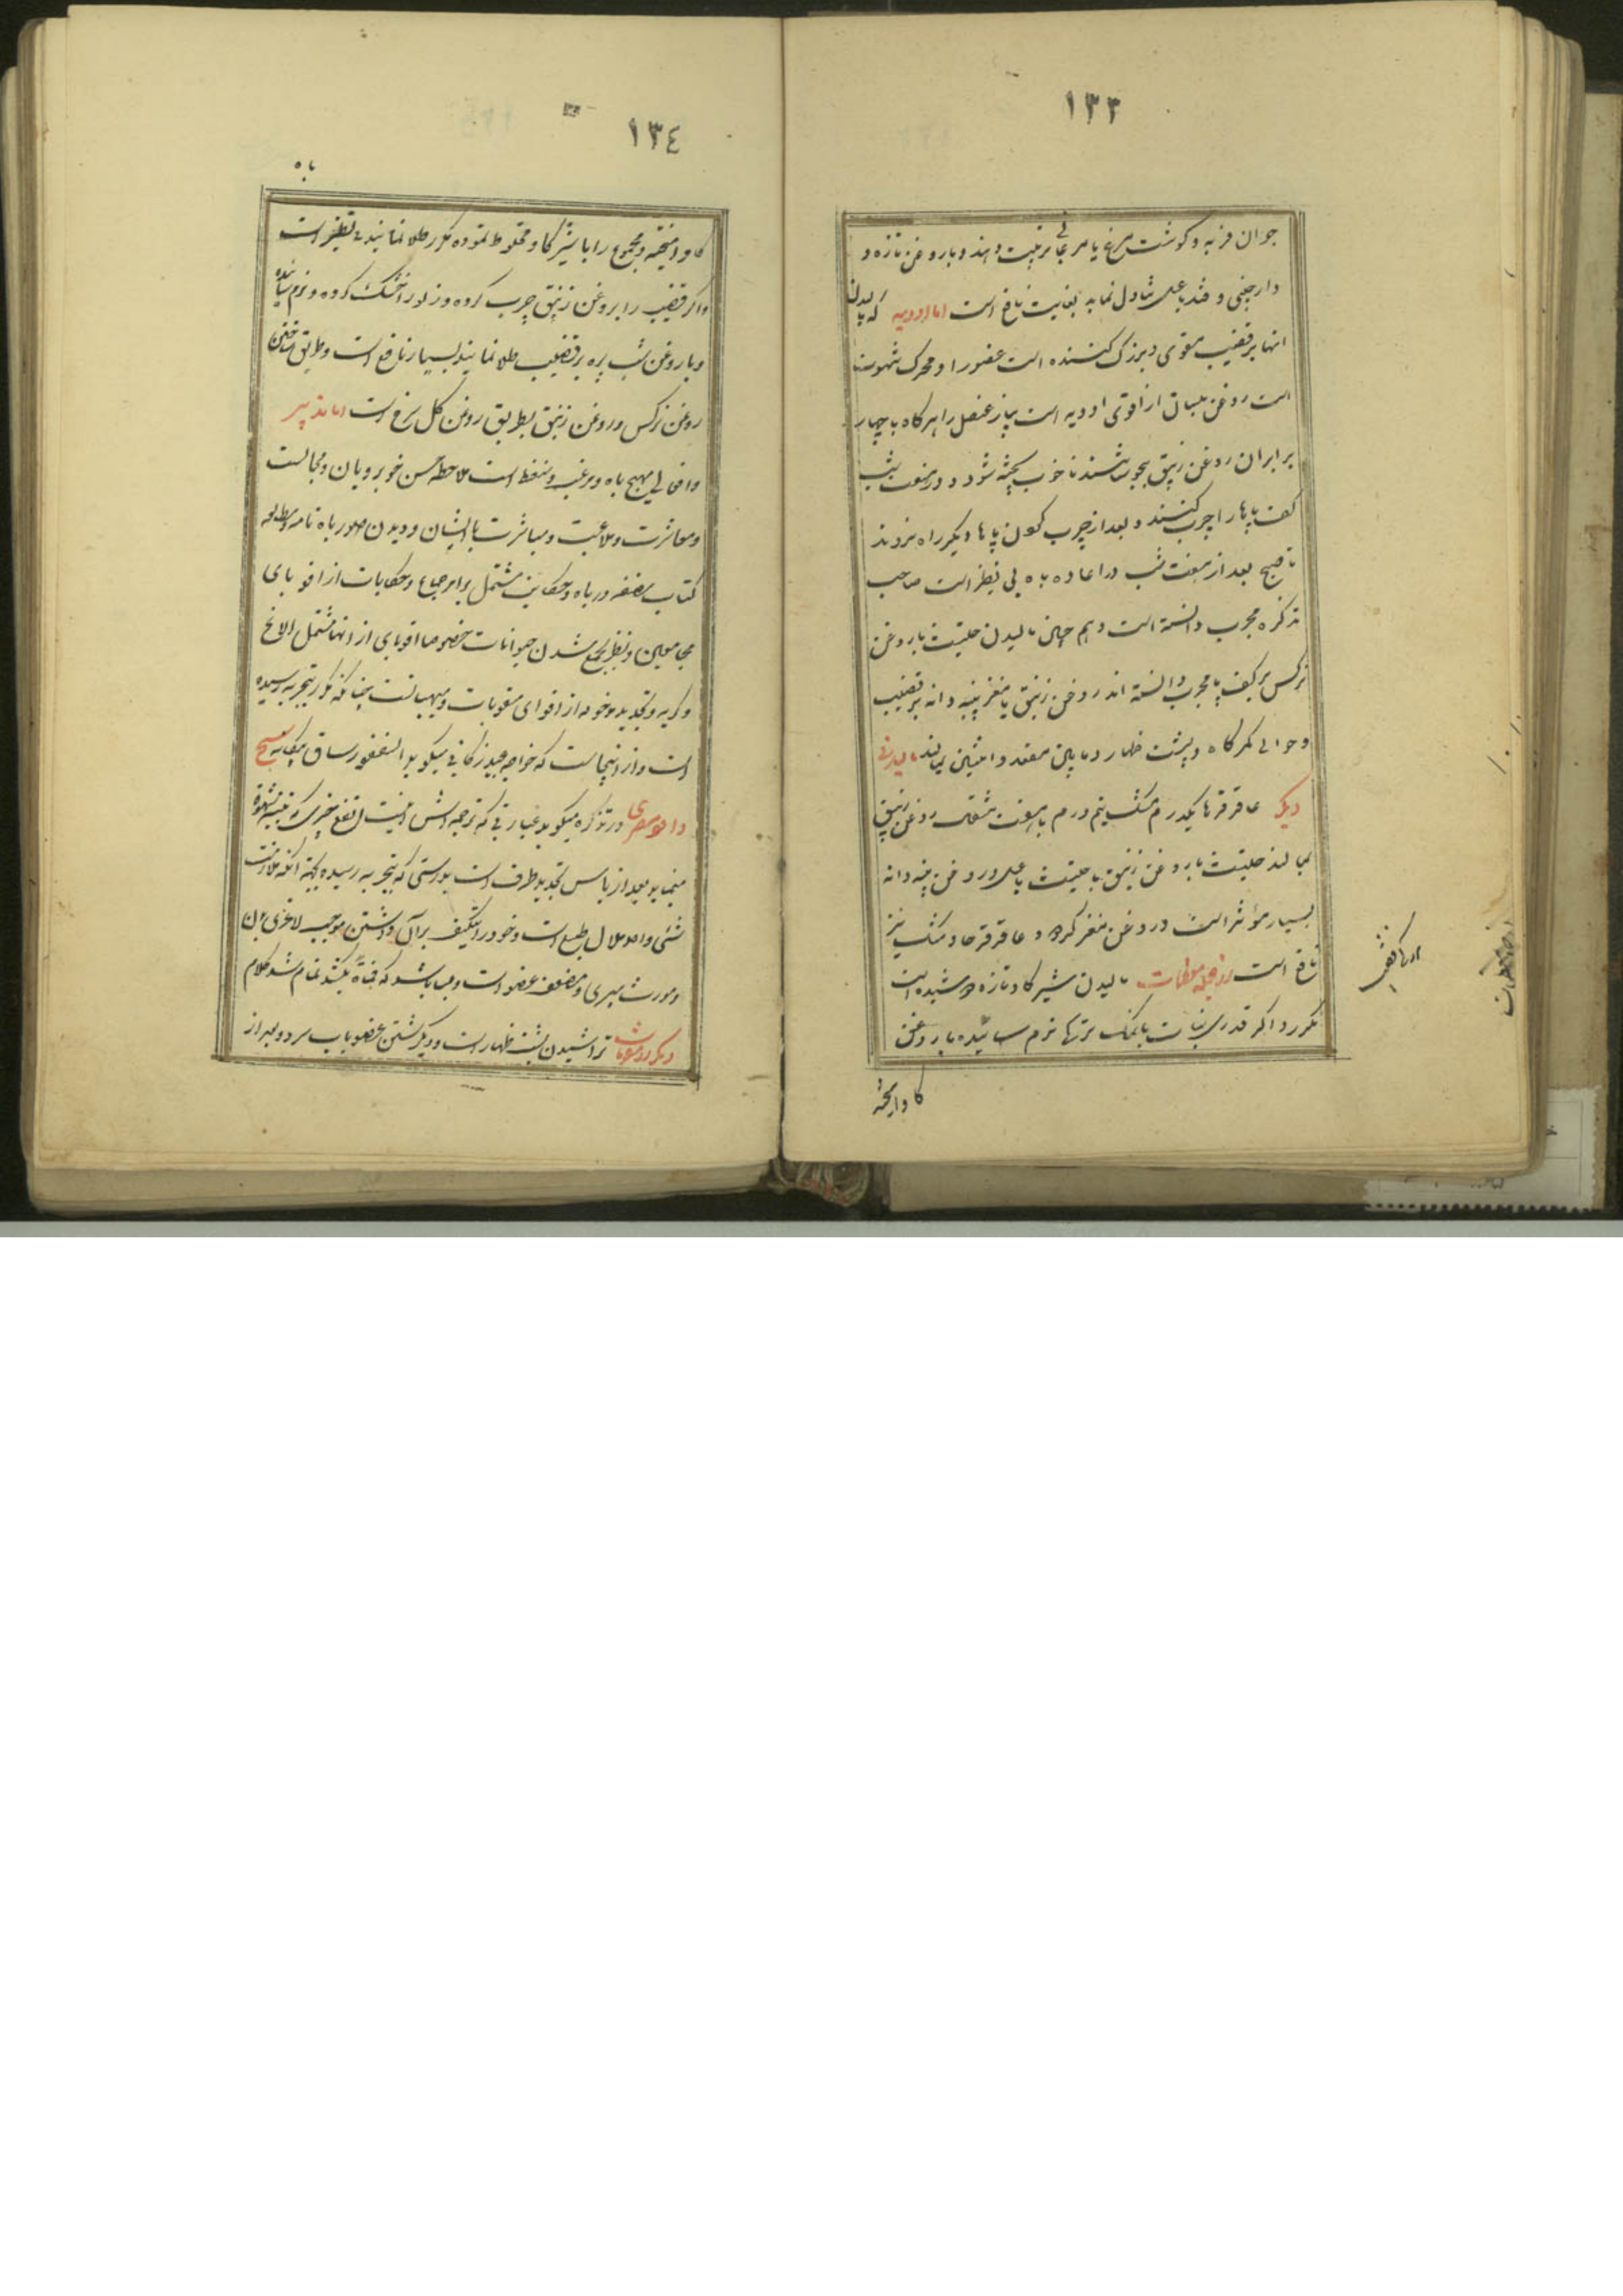 ١٣٣
جوان فربه و کوشت مرغ یا مربجانی ترتیب دهند و باروغن تازه و
دارچینی و قند یا عسل تناول نماید بغایت نافع است اما ادویه که مالیدن
انها بر قضیب مقوی و بزرک کننده است عضو را و محرک شهوت
است روغن بلسان از اقوی ادویه است پیاز عنصل را هر کاه با چهار
برابر ان روغن زنبق بجوشانند تا خوب پخته شود و در هفت شب
کف پاها را چرب کنند و بعد از چرب کردن پاها دیکر راه نروند
تا صبح بعد از هفت شب در اعاده باه بی نظیر است صاحب
تذکره مجرب دانسته است و هم چنین مالیدن حلتیت با روغن
نرکس بر کف پا مجرب دانسته اند روغن زنبق یا مغز پنبه دانه بر قضیب
و حوالی کمرکاه و پشت ظهار و مابین مقعد و انثیین بمالند مالیدنی
دیکر عاقرقرحا یکدرم مشک نیم درم با هفت مثقال روغن زنبق
بمالند حلتیت با روغن زنبق یا حلتیت با عسل و روغن پنبه دانه
بسیار مؤثر است و روغن مغز کردو و عاقرقرحا و مشک نیز
نافع است و از جمله معظمات مالیدن شیر کاو تازه دوشیده است
مکرر و اکر قدری نبات با نمک ترکها نرم سائیده با روغن
کاو امیخته
١٣٤
باه
کاو امیخته و مجموع را با شیر کاو مخلوط نموده مکرر طلا نمایند بی نظیر است
و اکر قضیب را بروغن زنبق چرب کرده و زلو را خشک کرده و نرم سائیده
و با روغن شب پره بر قضیب طلا نمایند بسیار نافع است و طریق ساختن
روغن نرکس و روغن زنبق بطریق روغن کل سرخ است اما تدابیر
و افعالی مهیج باه و مرغب و منعظ است ملاحظه حسن خوبرویان و مجالست
و معاشرت و ملاعبت و مباشرت با ایشان و دیدن صور باه نامه و مطالعه
کتاب مصنفه در باه و حکایتی مشتمل بر امر جماع و حکایات از اقوبای
مجامعین و نظر بجمع شدن حیوانات خصوصا اقوبای از انها مشتمل الاغ
و کربه و تجدید موخوله از اقوای مقویات و مهیجانست چنانکه مکرر بتجربه رسیده
است و از اینجاست که خواجه عبید زکانی میکوید السقنقور ساق بیکانه شیخ
داود مصری در تذکره میکوید عبارتی که ترجمه اش اینست انفع چیزی که تنبیه شهوة
مینماید بعد از یاس تجدید طرف است بدرستی که بتجربه رسیده بجهة انکه ملازمت
شیئ واحد ملال طبع است و خود را بتکلیف بر آن داشتن موجب لاغری بدن
و مورث پیری و مضعف عضو است و بسا باشد که فجأة بکشد تمام شد کلام
دیکر از مقویات تراشیدن پشت ظهار است و دیکر شستن عضو باب سرد و بعد از